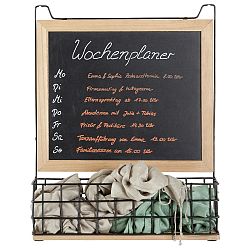 Wochenplaner
Mo Emma & Sophia Zahnarzttermin 8.00 Uhr
Di Firmung
Mi Elternsprechtag ab 17.30 Uhr
Do Abendessen mit Julia + Tobias
Fr Frisör & Maniküre 15.00 Uhr
Sa Tanzaufführung von Emma 13.00 Uhr
So Familienessen um 15.00 Uhr